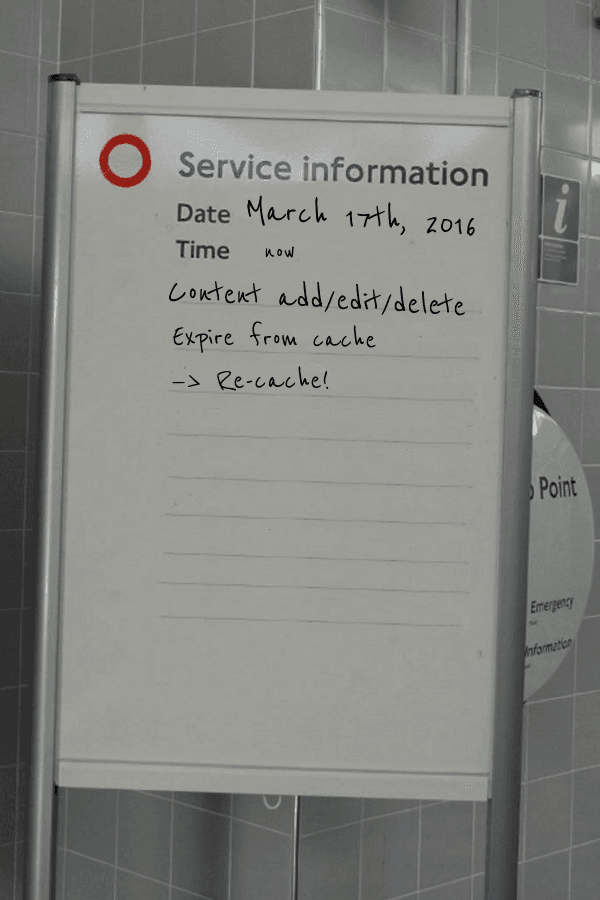 Service information
Date March 17th, 2016
Time now
Content add/edit/delete
Expire from cache
-> Re-cache!
i
Point
Emergency
Information